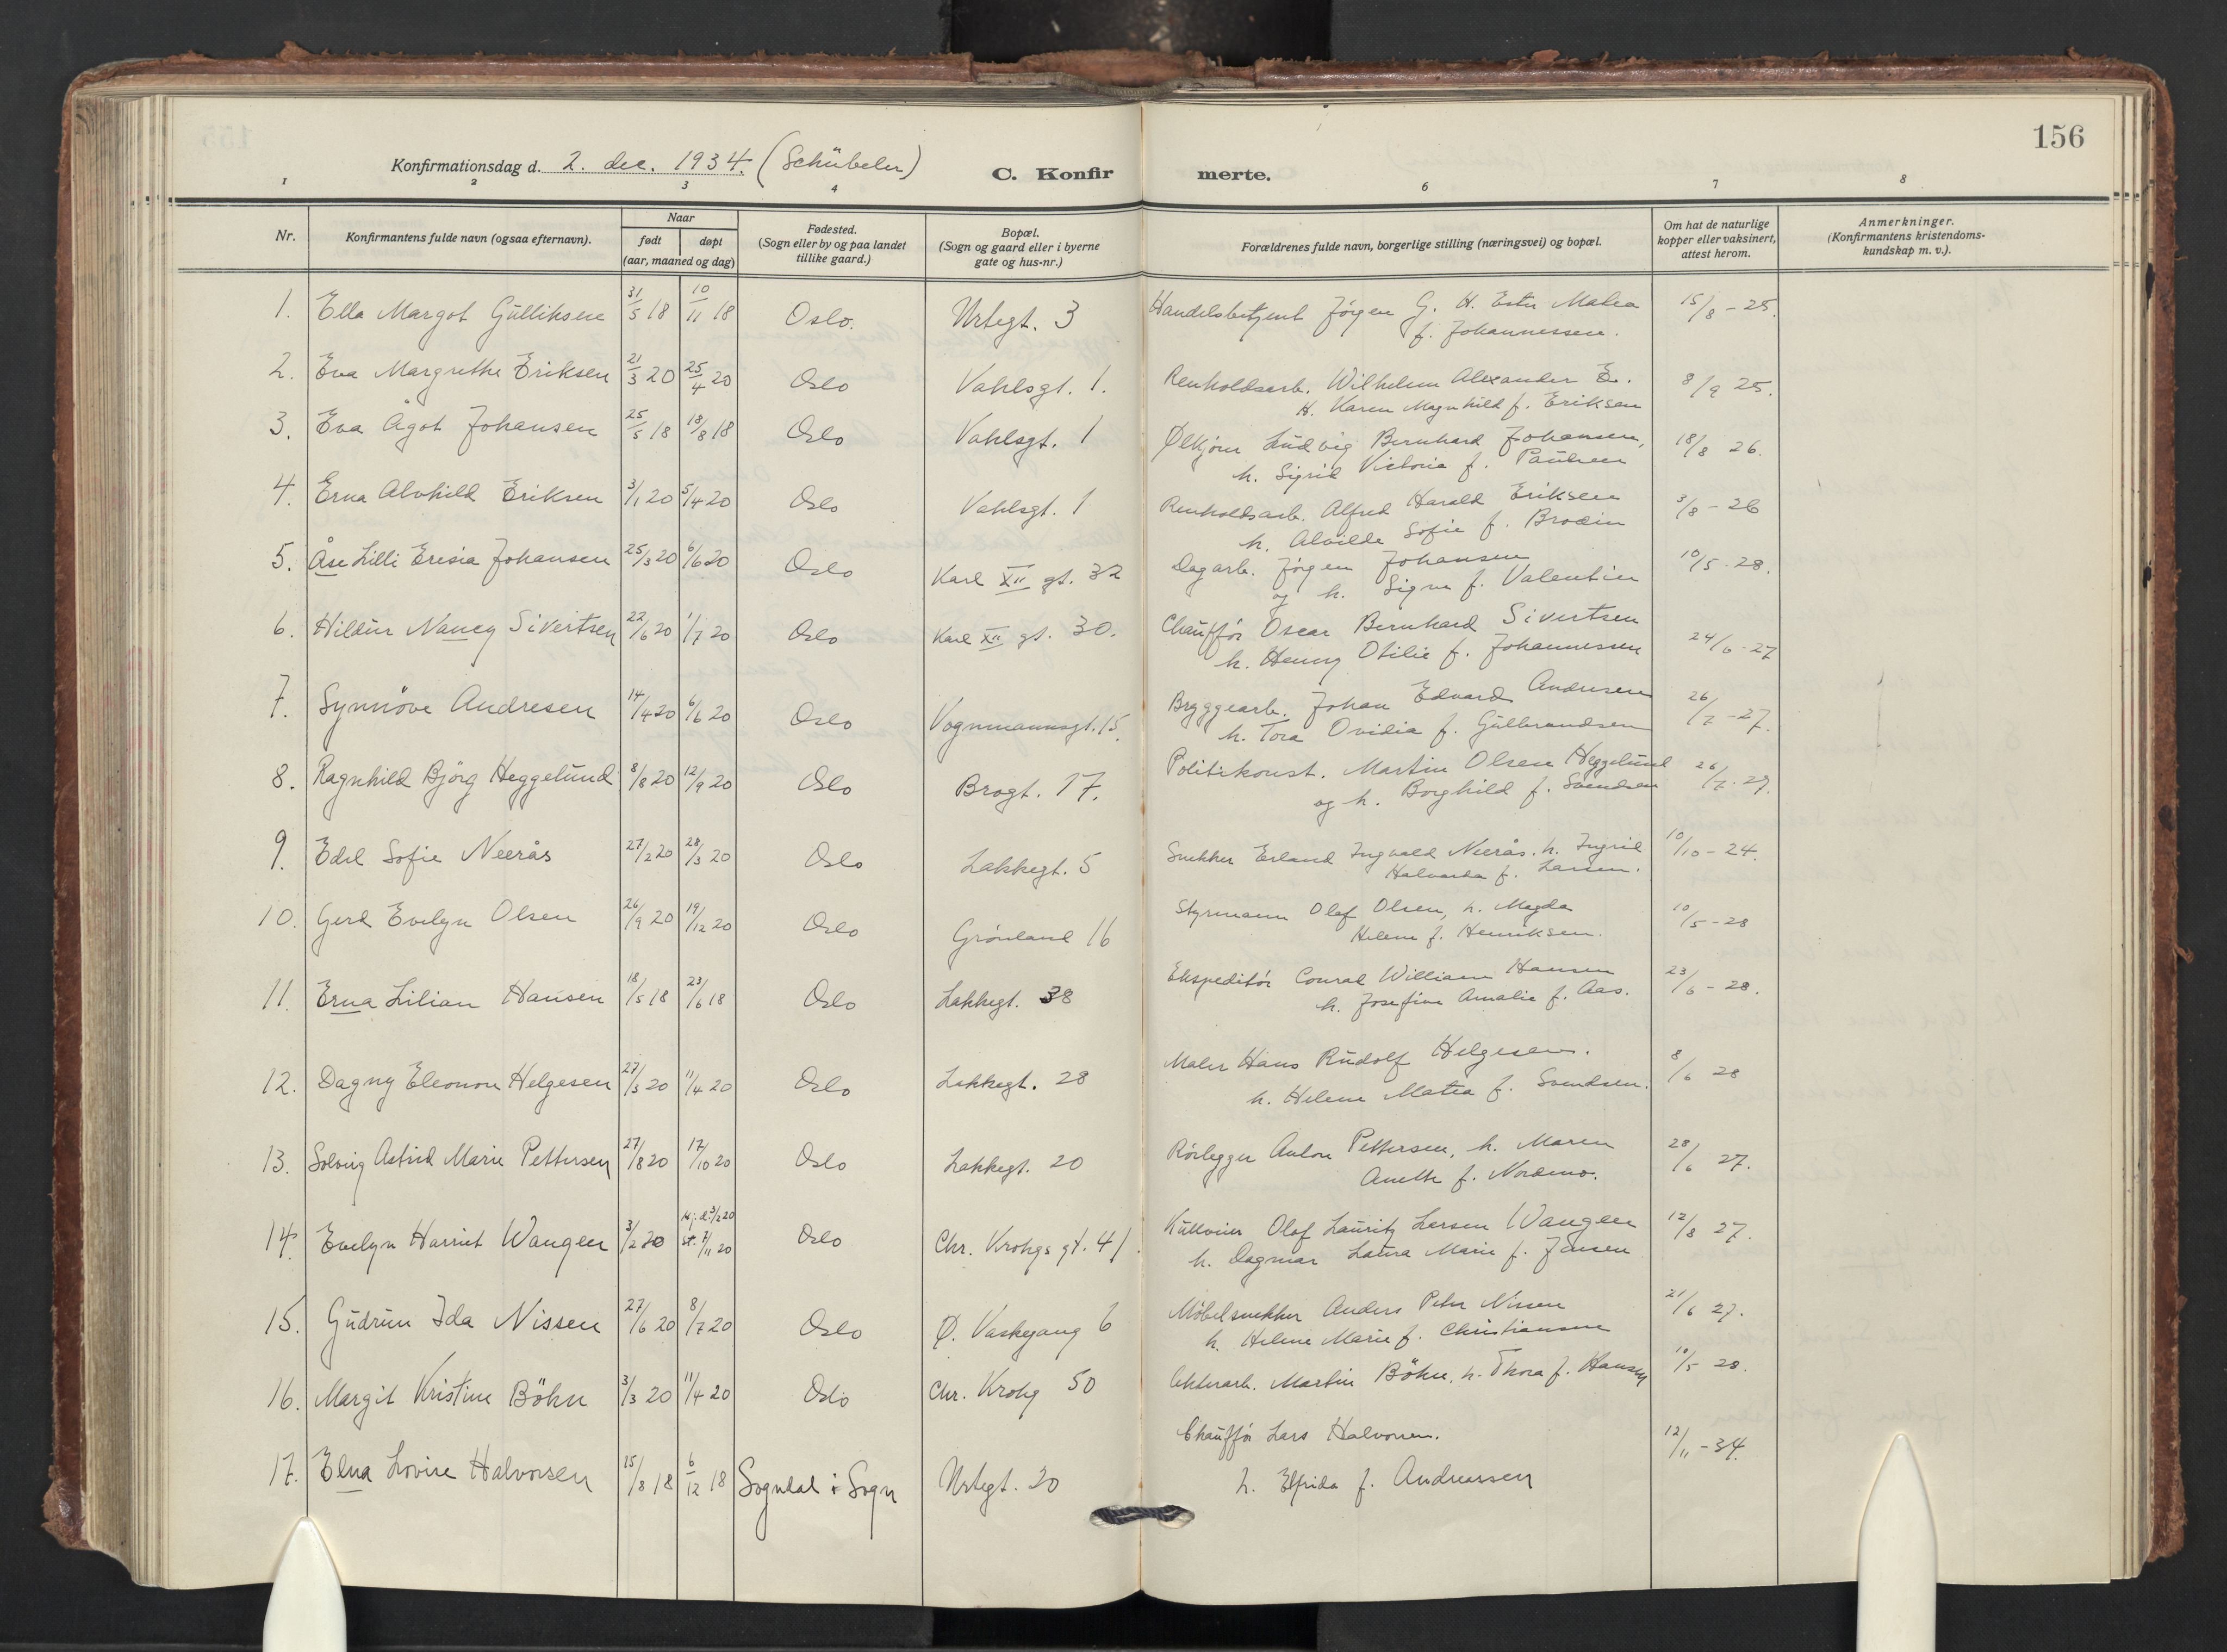 156
Konfirmationsdag d. 2. dec. 1934. (Schübeler) C. Konfirmerte.
1 2 3 4 6 7 8
Nr. Konfirmantens fulde navn (ogsaa efternavn). Naar født døpt (aar, maaned og dag) Fødested. (Sogn eller by og paa landet tillike gaard.) Bopæl. (Sogn og gaard eller i byerne gate og hus-nr.) Forældrenes fulde navn, borgerlige stilling (næringsvei) og bopæl. Om hat de naturlige kopper eller vaksinert, attest herom. Anmerkninger. (Konfirmantens kristendomskundskap m. v.).
1. Ella Margot Gulliksen 31/5 18 10/11 18 Oslo. Urtegt. 3 Handelsbetjent Jørgen G. H. Ester Malea 15/8-25.
f. Johannessen.
2. Eva Margrethe Eriksen 21/3 20 25/4 20 Oslo Vahlsgt. 1. Renholdsarb. Wilhelm Alexander E. 8/9 25.
H. Karen Magnhild f. Eriksen
3. Eva Ågot Johansen 25/5 18 18/8 18 Oslo Vahlsgt. 1 Ølkjører Ludvig Bernhard Johansen, 18/8 26.
h. Sigrid Victoria f. Paulsen
4. Erna Alvhild Eriksen 3/1 20 5/4 20 Oslo Vahlsgt. 1 Renholdsarb. Alfred Harald Eriksen 3/8-26
h. Alvilde Sofie f. Brodin
5. Åse Lilli Eresia Johansen 25/3 20 6/6 20 Oslo Karl XII gt. 32 Dagarb. Jørgen Johansen 10/5-28.
og h. Signe f. Valentin
6. Hildur Nancy Sivertsen 22/6 20 1/7 20 Oslo Karl XII gt. 30. Chauffør Oscar Bernhard Sivertsen 24/6-27
h. Henny Otilie f. Johannessen
7. Synnöve Andresen 14/4 20 6/6 20 Oslo Vognmannsgt. 15. Bryggearb. Johan Edvard Andresen 26/7-27.
h. Tora Ovidia f. Gulbrandsen
8. Ragnhild Björg Heggelund 8/8 20 12/9 20 Oslo Brogt. 17. Politikonst. Martin Olsen Heggelund 26/7-27.
og h. Borghild f. Svendsen
9. Edel Sofie Neerås 27/2 20 28/3 20 Oslo Lakkegt. 5 Snekker Erland Ingvald Neerås. h. Ingrid 10/10-24.
Halvarda f. Larsen.
10. Gerd Evelyn Olsen 26/9 20 19/12 20 Oslo Grønland 16 Styrmann Olaf Olsen, h. Magda 10/5-28
Helene f. Henriksen.
11. Erna Lilian Hansen 18/5 18 23/6 18 Oslo Lakkegt. 38 Ekspeditör Conrad William Hansen 23/6-28.
h. Josefine Amalie f. Aas.
12. Dagny Eleonore Helgesen 27/3 20 11/4 20 Oslo Lakkegt. 28 Maler Hans Rudolf Helgesen. 8/6 28
h. Helene Matea f. Svendsen.
13. Solveig Astrid Marie Pettersen 27/8 20 17/10 20 Oslo Lakkegt. 20 Rørlegger Anton Pettersen, h. Maren 28/6 27.
Anette f. Nordmo.
14. Evelyn Harriet Wangen 3/2 20 Hj. d. 3/2 20 st. 7/11 20 Oslo Chr. Krohgs gt. 41. Olaf Lauritz Larsen Wangen 12/8 27.
h. Dagmar Laura Marie f. Jensen
15. Gudrun Ida Nissen 27/6 20 8/7 20 Oslo Ø. Vaskegang 6 Möbelsnekker Anders Peter Nissen 21/6 27.
h. Helene Marie f. Christiansen
16. Margit Kristine Böhn 3/3 20 11/4 20 Oslo Chr. Krohg 50 Martin Böhn, h. Thora f. Hansen 10/5 28.
17. Elna Lovise Halvorsen 15/8 18 6/12 18 Sogndal i Sogn Urtegt. 20 Chauffør Lars Halvorsen. 12/11-34.
h. Elfrida f. Andreassen